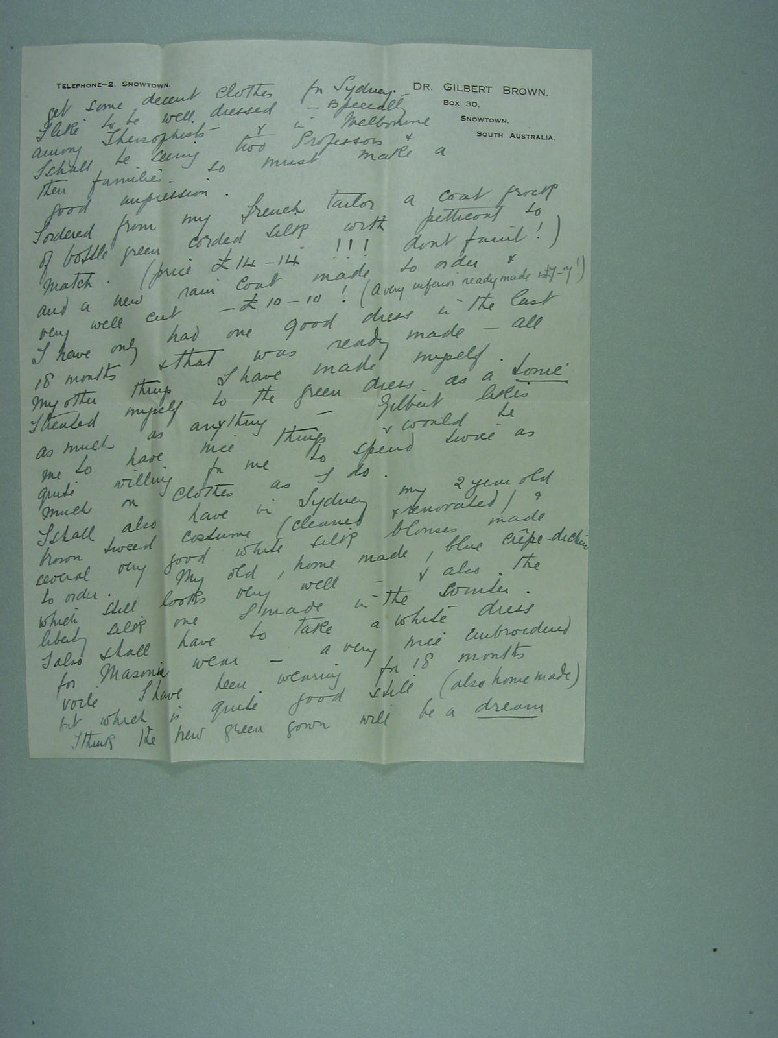 TELEPHONE—2, SNOWTOWN.
DR. GILBERT BROWN.
BOX 30,
SNOWTOWN,
SOUTH AUSTRALIA.
get some decent clothes for Sydney –
I like to be well dressed – specially
among Theosophists – & in Melbourne
I shall be seeing two Professors &
their families so must make a
good impression.
I ordered from my French tailor a coat frock
of bottle green corded silk with petticoat to
match. (price £14–14 !!! dont faint!)
and a new rain coat made to order &
very well cut – £10–10! (a very inferior ready made is £7–7!)
I have only had one good dress in the last
18 months & that was ready made – all
my other things I have made myself.
I treated myself to the green dress as a
as much as anything – Gilbert likes
me to have nice things & would be
quite willing for me to spend twice as
much on clothes as I do.
I shall also have in Sydney my 2 year old
brown tweed costume (cleaned & renovated) &
several very good white silk blouses made
to order. My old, home made, blue crêpe-de-chine
which still looks very well – & also the
liberty silk one I made in the
I also shall have to take a white dress
for Masonic wear – a very nice embroidered
voile I have been wearing for 18 months
but which is quite good still (also home made)
I think the new green gown will be a dream